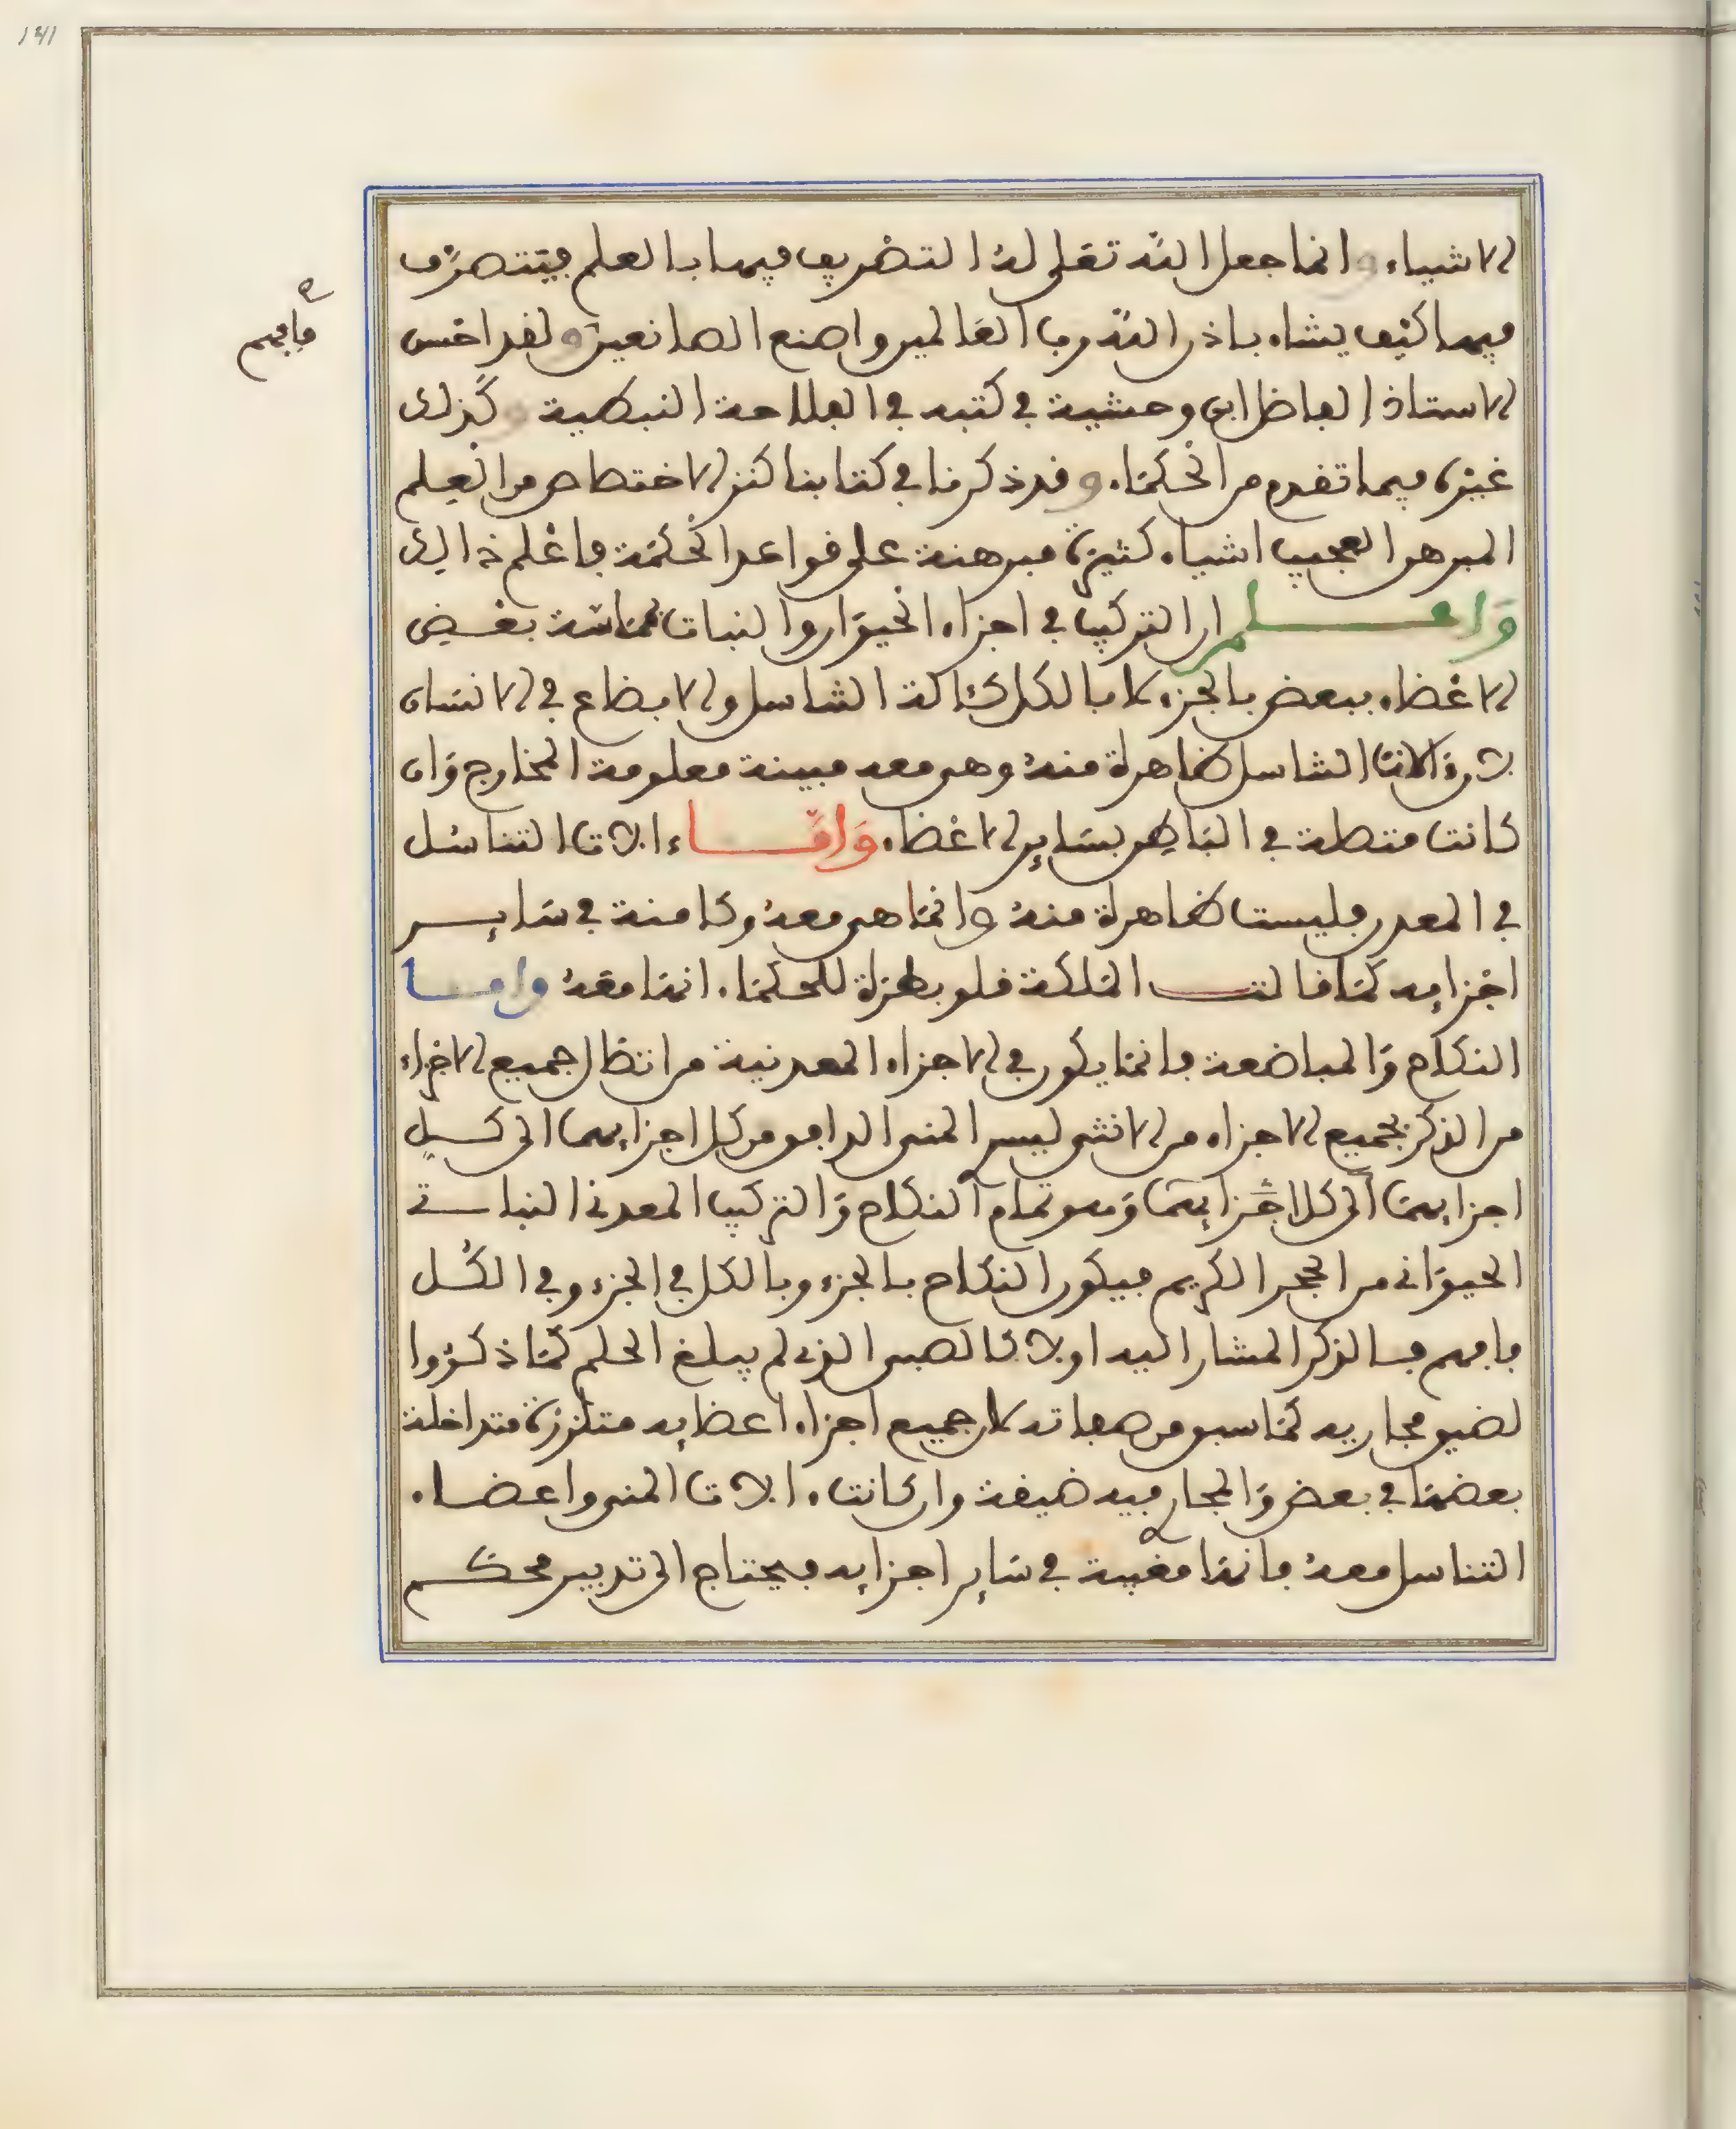 141
الاشياء وانما جعل الله تعلى له التصريف فيها بالعلم فيتصرف
فيها كيف يشاء باذن الله رب العالمين واصنع الصانعين ولقد احسن
فافهم
الاستاذ الفاضل ابن وحشية في كتبه في الفلاحة النبطية وكذلك
غيره فيما تقدم من الحكماء وقد ذكرنا في كتابنا كنز الاختصاص من العلم
المبرهن العجيب اشياء كثيرة مبرهنة على قواعد الحكمة فاعلم ذالك
واعلم ان التركيب في اجزاء الحيوان والنبات مماسة بعض
الاعضاء ببعض بالجزء لا بالكل كئالة التناسل والابضاع في الانسان
الات التناسل ظاهرة منه وهي معه مبينة معلومة المخارج وان
كانت متصلة في الباطن بساير الاعضاء واما ءالات التناسل
في المعدن فليست ظاهرة منه وانما هي معه وكامنة في ساير
اجزايه كما قالت الملكة قلوبطرة للحكماء انها معه واما
النكاح والمباضعة فانما يكون في الاجزاء المعدنية من اتصال جميع الاجزاء
من الذكر بجميع الاجزاء من الانثى ليسر المنى الدافق من كل اجزايهما الى كل
اجزايهما الى كل اجزايهما وهو تمام النكاح والتركيب المعدني النباتي
الحيواني من الحجر الكريم فيكون النكاح بالجزء وبالكل في الجزء وفي الكل
فافهم فالذكر المشار اليه اولا كالصبي الذي لم يبلغ الحلم كما ذكروا
لضيق مجاريه كما سبق من صفاته لان جميع اجزاء اعضايه متلززة متداخلة
بعضها في بعض والمجاري فيه ضيقة وان كانت ءالات المنى واعضاء
التناسل معه فانها مغيبة في ساير اجزايه فيحتاج الى تدبير محكم